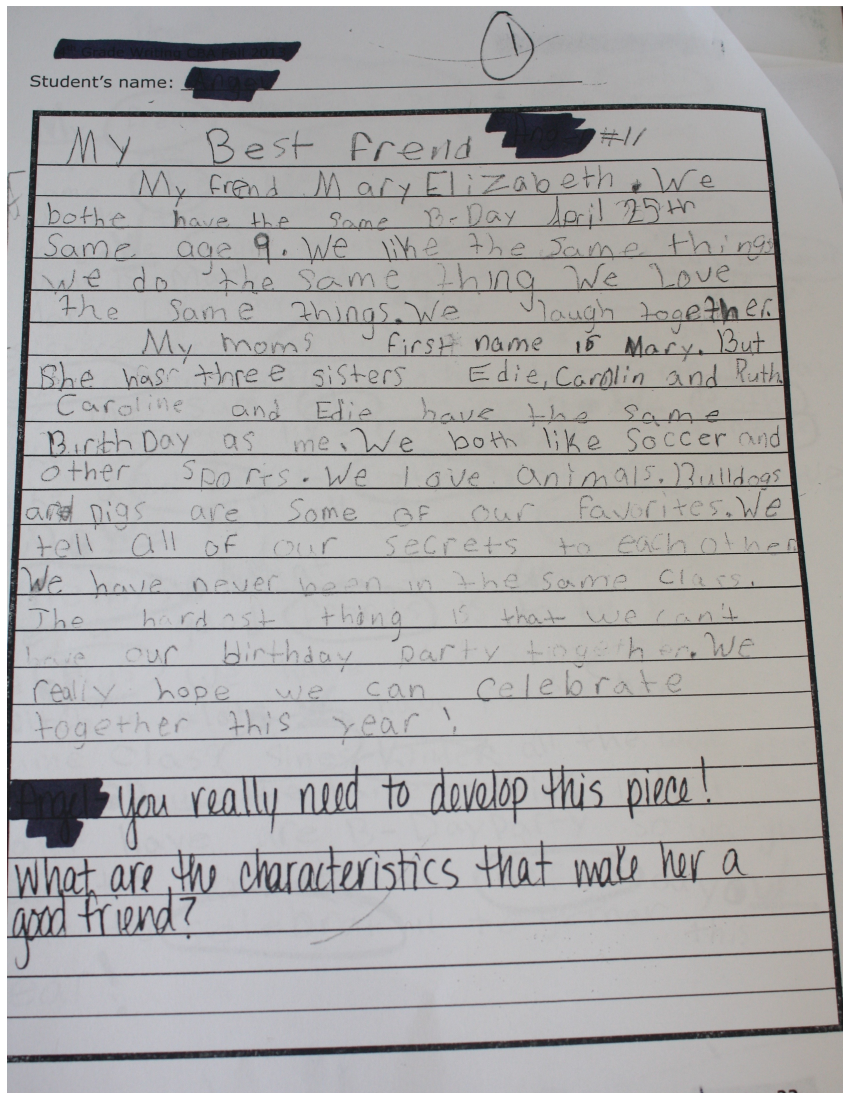 Student's name:
1
My Best frend #11
My frend Mary Elizabeth. We
bothe have the same B-Day April 25th
Same age 9. We like the same things
we do the same thing We Love
the same things. We laugh together.
My moms first name is Mary. But
She has three sisters Edie, Carolin and Ruth
Caroline and Edie have the same
Birth Day as me. We both like Soccer and
other sports. We love animals. Bulldogs
and pigs are some of our favorites. We
tell all of our secrets to each other
We have never been in the same class.
The hardest thing is that we can't
have our birthday party together. We
really hope we can celebrate
together this year!
You really need to develop this piece!
What are the characteristics that make her a
good friend?